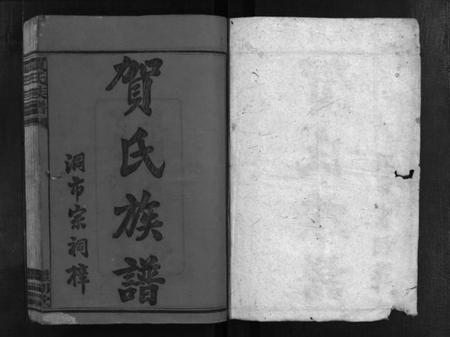 賀氏族譜
洞市宗祠梓